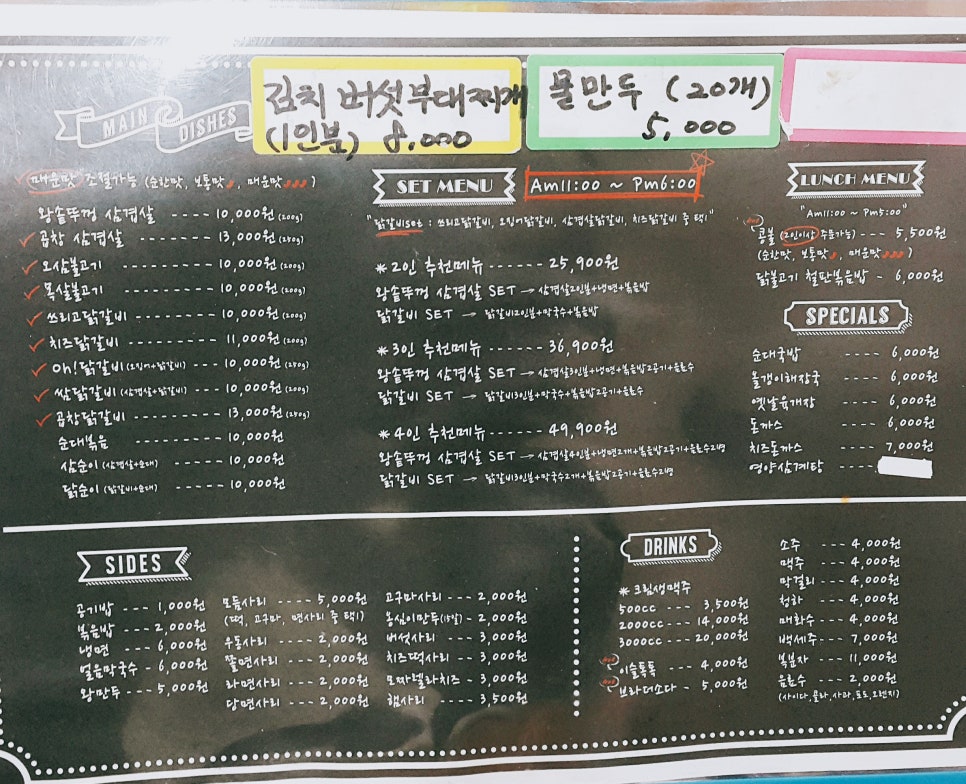 김치 버섯부대찌개
(1인분) 8,000
물만두 (20개)
5,000
MAIN DISHES
매운맛 조절가능 (순한맛, 보통맛, 매운맛)
왕솥뚜껑 삼겹살 ---- 10,000원 (200g)
곱창 삼겹살 -------- 13,000원 (250g)
오삼불고기 --------- 10,000원 (200g)
목살불고기 --------- 10,000원 (200g)
쓰리고닭갈비 -------- 10,000원 (200g)
치즈닭갈비 --------- 11,000원 (200g)
Oh!닭갈비 (오징어+닭갈비) ---- 10,000원 (250g)
쌈닭갈비 (삼겹살+닭갈비) ---- 10,000원 (200g)
곱창닭갈비 --------- 13,000원 (250g)
순대볶음 ---------- 10,000원
삼순이 (삼겹살+순대) ----- 10,000원
닭순이 (닭갈비+순대) ----- 10,000원
SET MENU
Am11:00 ~ Pm6:00
"닭갈비set : 쓰리고닭갈비, 오징어닭갈비, 삼겹살닭갈비, 치즈닭갈비 중 택!"
*2인 추천메뉴------- 25,900원
왕솥뚜껑 삼겹살 SET → 삼겹살2인분+냉면+볶음밥
닭갈비 SET → 닭갈비2인분+막국수+볶음밥
*3인 추천메뉴------- 36,900원
왕솥뚜껑 삼겹살 SET → 삼겹살3인분+냉면+볶음밥2공기+음료수
닭갈비 SET → 닭갈비3인분+막국수+볶음밥2공기+음료수
*4인 추천메뉴------- 49,900원
왕솥뚜껑 삼겹살 SET → 삼겹살4인분+냉면2개+볶음밥2공기+음료수2병
닭갈비 SET → 닭갈비3인분+막국수2개+볶음밥2공기+음료수2병
LUNCH MENU
"Am11:00 ~ Pm5:00"
콩불 (2인이상 주문가능) --- 5,500원
(순한맛, 보통맛, 매운맛)
닭불고기 철판볶음밥 - 6,000원
SPECIALS
순대국밥 ---- 6,000원
올갱이해장국 ---- 6,000원
옛날육개장 ---- 6,000원
돈까스 ---- 6,000원
치즈돈까스 ---- 7,000원
영양삼계탕 ----
SIDES
공기밥 --- 1,000원
볶음밥 --- 2,000원
냉면 ---- 6,000원
얼음막국수 - 6,000원
왕만두 --- 5,000원
모듬사리 ---- 5,000원
(떡, 고구마, 면사리 중 택!)
우동사리 --- 2,000원
쫄면사리 --- 2,000원
라면사리 --- 2,000원
당면사리 --- 2,000원
고구마사리 -- 2,000원
옹심이만두(15알) - 2,000원
버섯사리 --- 3,000원
치즈떡사리 -- 3,000원
모짜렐라치즈 - 3,000원
햄사리 --- 3,500원
DRINKS
*크림생맥주
500cc --- 3,500원
2000cc --- 14,000원
3000cc --- 20,000원
이슬톡톡 --- 4,000원
브라더소다 - 5,000원
소주 --- 4,000원
맥주 --- 4,000원
막걸리 --- 4,000원
청하 --- 4,000원
매화수 --- 4,000원
백세주 --- 7,000원
복분자 --- 11,000원
음료수 --- 2,000원
(사이다, 콜라, 사과, 포도, 오렌지)